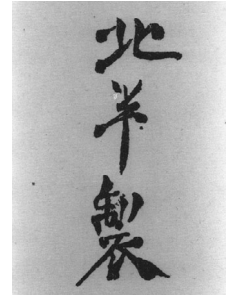 北半製